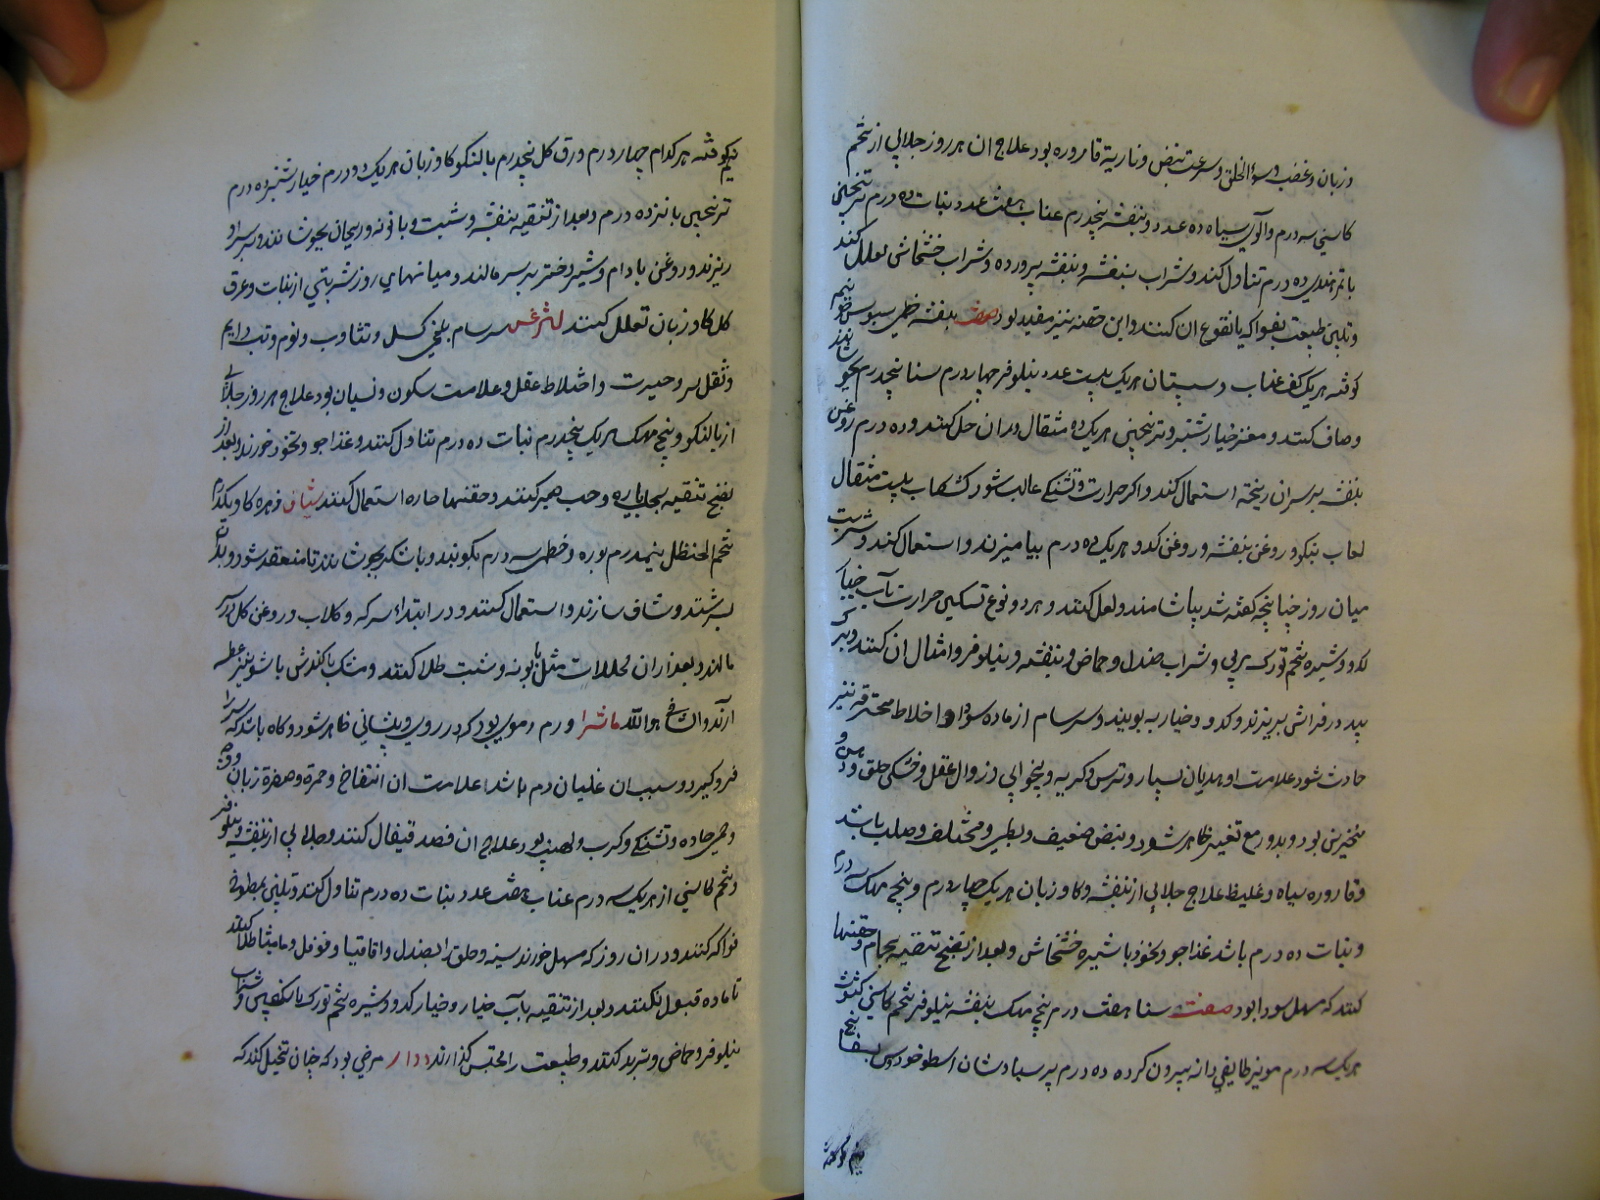 و زبان و غضب و سوء الخلق و سرعت نبض و ناریة قاروره بود علاج ان هر روز جلابی از تخم
کاسنی سه درم و آلوی سیاه ده عدد و بنفشه پنجدرم عناب هفت عدد نبات ده درم ترنجبین
با تمر هندی ده درم تناول کند و شراب بنفشه و بنفشه پرورده و شراب خشخاش تعلل کند
و تلیین طبیعت بفواکه یا نقوع ان کنند و این حقنه نیز مفید بود صفت بنفشه خطمی سبوس جو نیم
کوفته هر یک کف عناب و سپستان هر یک بیست عدد نیلوفر چهار درم سنا پنجدرم بجوشانند
و صاف کنند و مغز خیارشنبر و ترنجبین هر یک ده مثقال در ان حل کنند و ده درم روغن
بنفشه بر سر ان ریخته استعمال کند و اکر حرارت و تشنکی غالب شود کشکاب بیست مثقال
لعاب بنکو و روغن بنفشه و روغن کدو هر یک ده درم بیامیزند و استعمال کند و شربت
میان روز چنانچه کفته شد بیاشامند و تعلل کنند و هر دو نوع تسکین حرارت بآب خیار
کدو و شیره تخم تورک مربی و شراب صندل و حماض و بنفشه و نیلوفر و امثال ان کنند و برک
بید در فراش بریزند و کدو و خیار به بویند و سرسام از ماده سودا و اخلاط محترقه نیز
حادث شود علامت او هذیان بسیار و ترس و کریه و بیخوابی و زوال عقل و خشکی حلق و دهن و
منخرین بود و بدور مع تغیر ظاهر شود و نبض ضعیف و بطی و مختلف و صلب باشد
و قاروره سیاه و غلیظ علاج جلابی از بنفشه و کاو زبان هر یک چهار درم و بنج مهک سه درم
و نبات ده درم باشد غذا جو و نخود با شیره خشخاش و بعد از نضج تنقیه بحبها و حقنها
کنند که مسهل سودا بود صفت سنا هفت درم بنج مهک بنفشه نیلوفر تخم کاسنی کشوث
هر یک سه درم مویز طایفی دانه بیرون کرده ده درم پرسیاوشان اسطوخودوس بسفایج
نیم کوفته
نیم کوفته هر کدام چهار درم ورق کل پنجدرم بالنکو کاو زبان هر یک دو درم خیارشنبر ده درم
ترنجبین پانزده درم و بعد از تنقیه بنفشه و شبت و بابونه و ریحان بجوشانند و بر سر او
ریزند و روغن بادام و شیر دختر بر سر مالند و میانهای روز شربتی از نبات و عرق
کل کاو زبان تعلل کنند لیثرغس سرسام بلغمی کسل و تثاوب و نوم و تب دایم
و ثقل سر و حیرت و اختلاط عقل و علامت سکون و نسیان بود علاج هر روز جلابی
از بالنکو و بنج مهک هر یک پنجدرم نبات ده درم تناول کنند و غذا جو و نخود خورند و بعد از
نضج تنقیه بحب ایاره و حب صبر کنند و حقنها حاره استعمال کنند شیاف زهره کاو یکدرم
شحم الحنظل نیمدرم بوره و خطمی سه درم بکوبند و با شکر بجوشانند تا منعقد شود و بدان
بسرشند و شاف سازند و استعمال کنند و در ابتدا سرکه و کلاب و روغن کل بر سر
مالند و بعد از ان محللات مثل بابونه و شبت طلا کنند و مشک با کندش با شونیز عطسه
آرند ان شاء الله ماشرا ورم دموی بود که در روی و پیشانی ظاهر شود و کاه باشد که سر را
فرو کیرد و سبب ان غلیان دم باشد علامت ان انتفاخ و حمرة و صفرة زبان و وجع
و حمی حاده و تشنکی و کرب و لهیب بود علاج ان فصد قیفال کنند و جلابی از بنفشه و نیلوفر
و تخم کاسنی از هر یک سه درم عناب هفت عدد نبات ده درم تناول کند و تلیین بمطبوخ
فواکه کنند و در ان روز که مسهل خورند سینه و حلق را بصندل و اقاقیا و فوفل و مامیثا طلا کنند
تا ماده قبول نکنند و بعد از تنقیه بآب خیار و خیار کدو و شیره تخم تورک با سکنجبین و شراب
نیلوفر و حماض و تبرید کنند و طبیعت را محتبس نکذارند دوار مرضی بود که چنان تخیل کند که